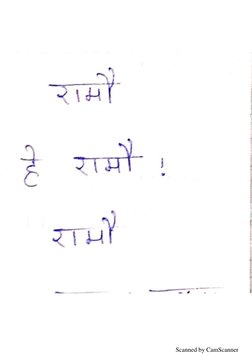 रामौ
हे रामौ !
रामौ
Scanned by CamScanner